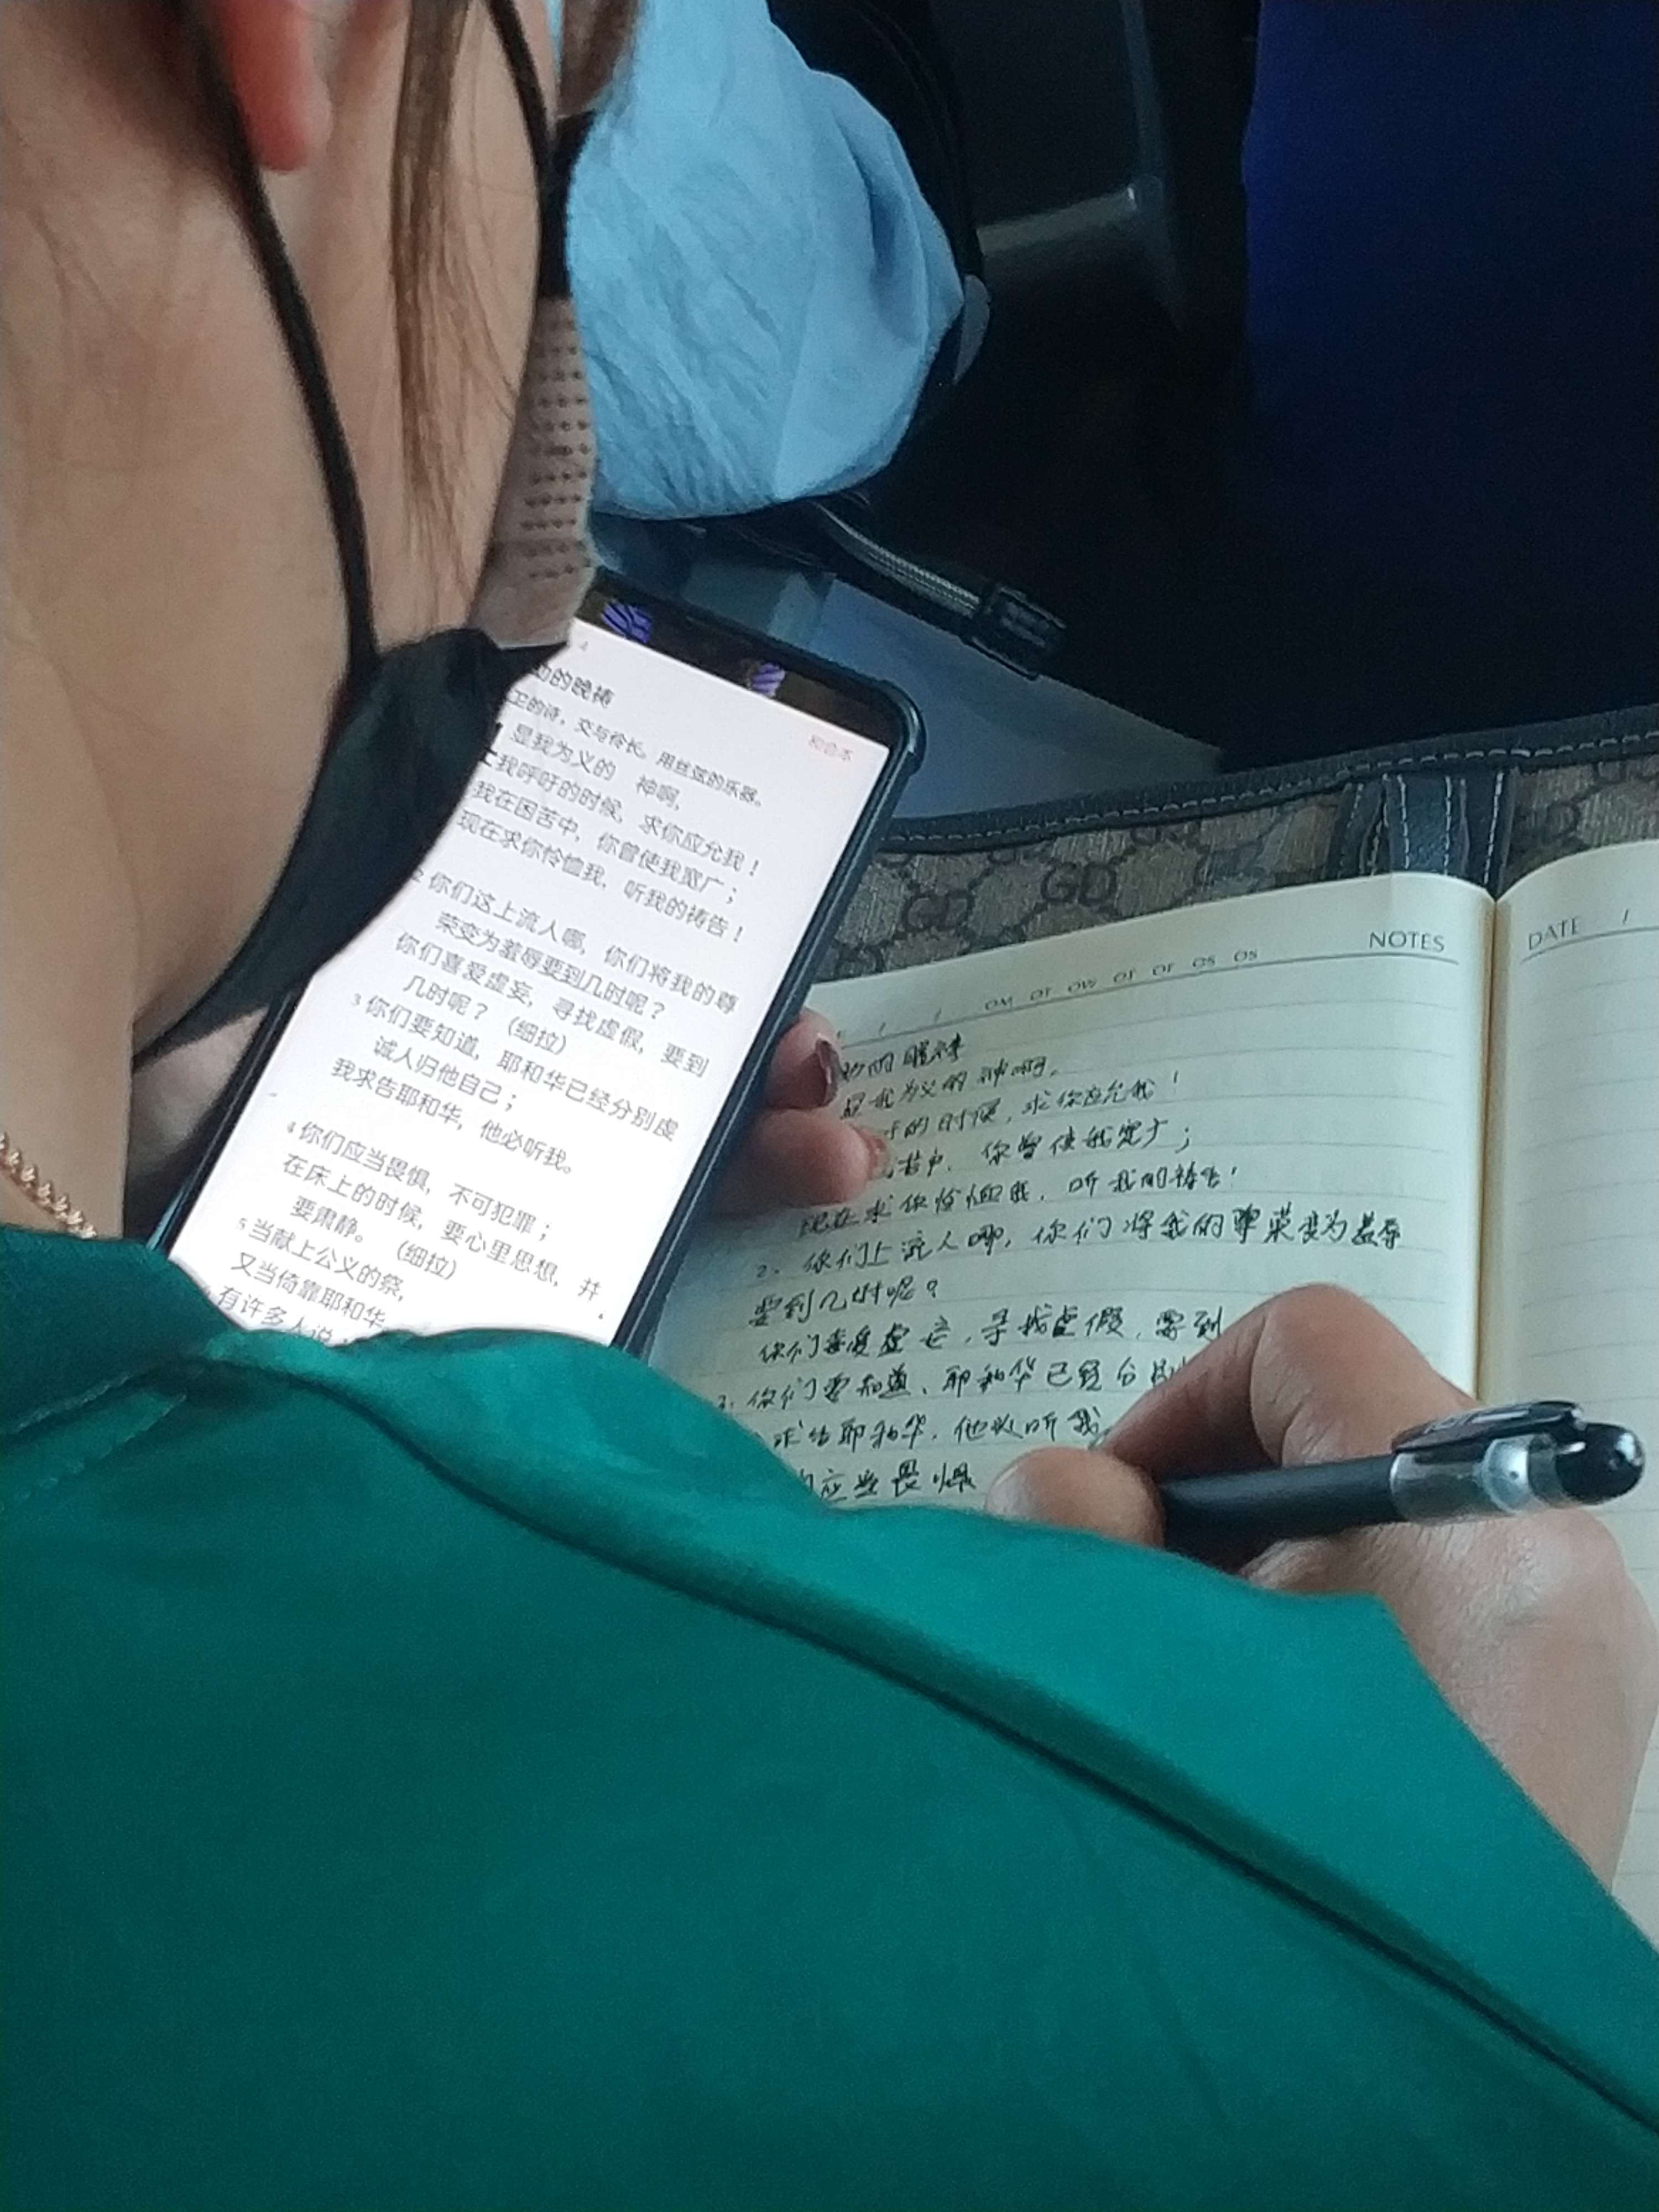 4
的晚祷
的诗，交与伶长。用丝弦的乐器。
和合本
显我为义的 神啊，
我呼吁的时候，求你应允我！
我在困苦中，你曾使我宽广；
现在求你怜恤我，听我的祷告！
2 你们这上流人哪，你们将我的尊
荣变为羞辱要到几时呢？
你们喜爱虚妄，寻找虚假，要到
几时呢？（细拉）
3 你们要知道，耶和华已经分别虔
诚人归他自己；
我求告耶和华，他必听我。
4 你们应当畏惧，不可犯罪；
在床上的时候，要心里思想，并
要肃静。（细拉）
5 当献上公义的祭，
又当倚靠耶和华
有许多人说：
GD GD GD
NOTES
DATE /
/ / OM OT OW OT OF OS OS
的晚祷
显我为义的神啊，
的时候，求你应允我！
苦中，你曾使我宽广；
现在求你怜恤我，听我的祷告！
2. 你们上流人哪，你们将我的尊荣变为羞辱
要到几时呢？
你们喜爱虚妄，寻找虚假，要到
3. 你们要知道，耶和华已经分别
求告耶和华，他必听我
应当畏惧